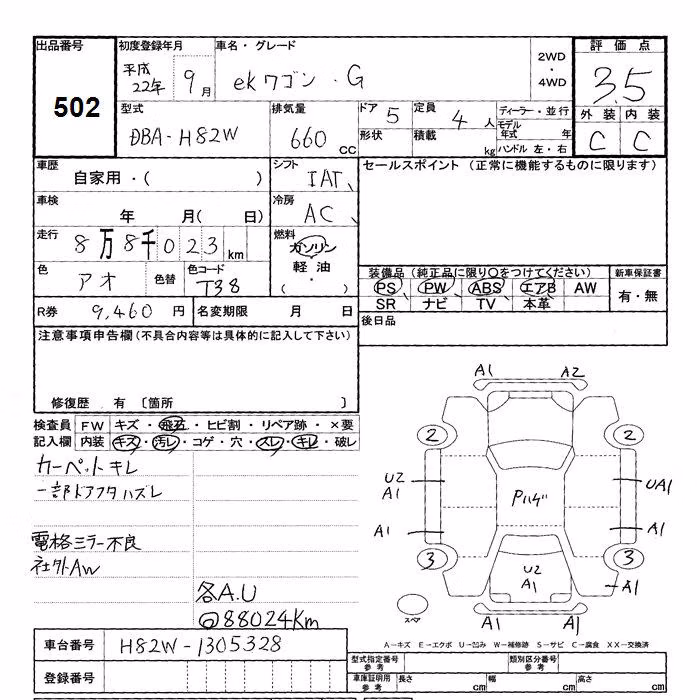 出品番号 初度登録年月 車名・グレード 評価点
502 平成22年 9月 ekワゴン・G 2WD・4WD 3.5
型式 排気量 ドア 5 定員 4人 ディーラー・並行 外装 内装
DBA-H82W 660CC 形状 積載 kg モデル年式 年 ハンドル 左・右 C C
車歴 自家用・( ) シフト IAT、 セールスポイント (正常に機能するものに限ります)
車検 年 月( 日) 冷房 AC、
走行 8万8千023km 燃料 ガソリン
色 アオ 色替 色コード T38 軽油 ( ・ ) 装備品(純正品に限り○をつけてください) 新車保証書
PS PW ABS エアB AW 有・無
SR ナビ TV 本革
R券 9,460円 名変期限 月 日 後日品
注意事項申告欄(不具合内容等は具体的に記入して下さい)
修復歴 有 〔箇所 〕
検査員記入欄 FW キズ・飛石・ヒビ割・リペア跡・×要
内装 キズ・汚レ・コゲ・穴・スレ・キレ・破レ
カーペットキレ
一部ドアフタハズレ
電格ミラー不良
社外AW
各A.U
@88024Km
A1 A2
2 2
U2 A1 Pハゲ UA1
A1 A1
3 3
U2 A1 A1
スペア A1 A1
A-キズ E-エクボ U-凹み W-補修跡 S-サビ C-腐食 XX-交換済
車台番号 H82W-1305328 型式指定番号 参考 類別区分番号 参考
登録番号 車庫証明用 参考 長さ cm 幅 cm 高さ cm